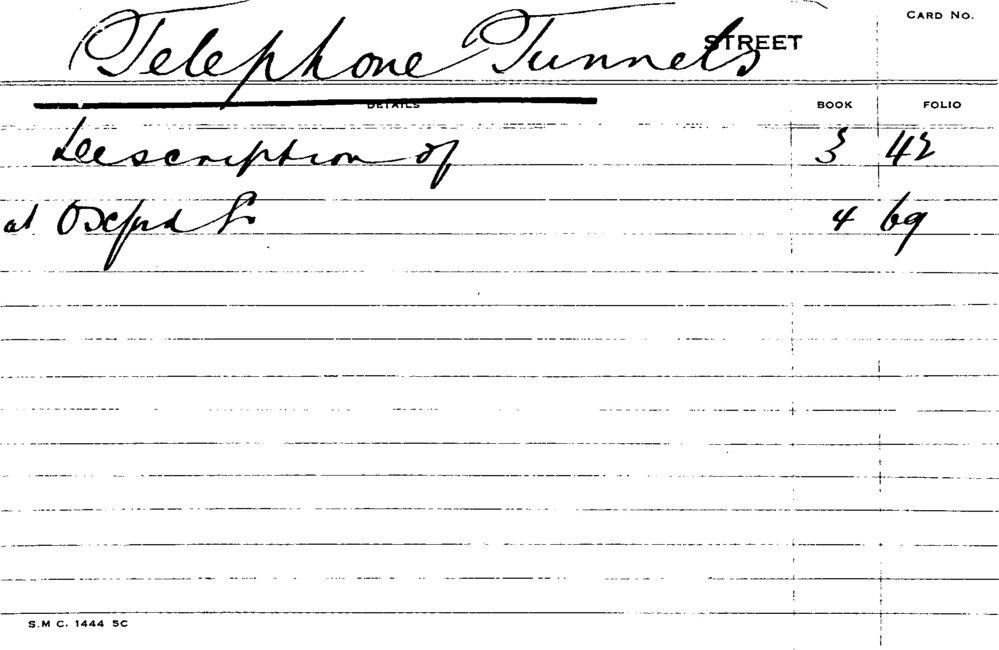 CARD NO.
Telephone Tunnels STREET
DETAILS BOOK FOLIO
Description of 3 42
at Oxford St 4 69
S.M C. 1444 5C